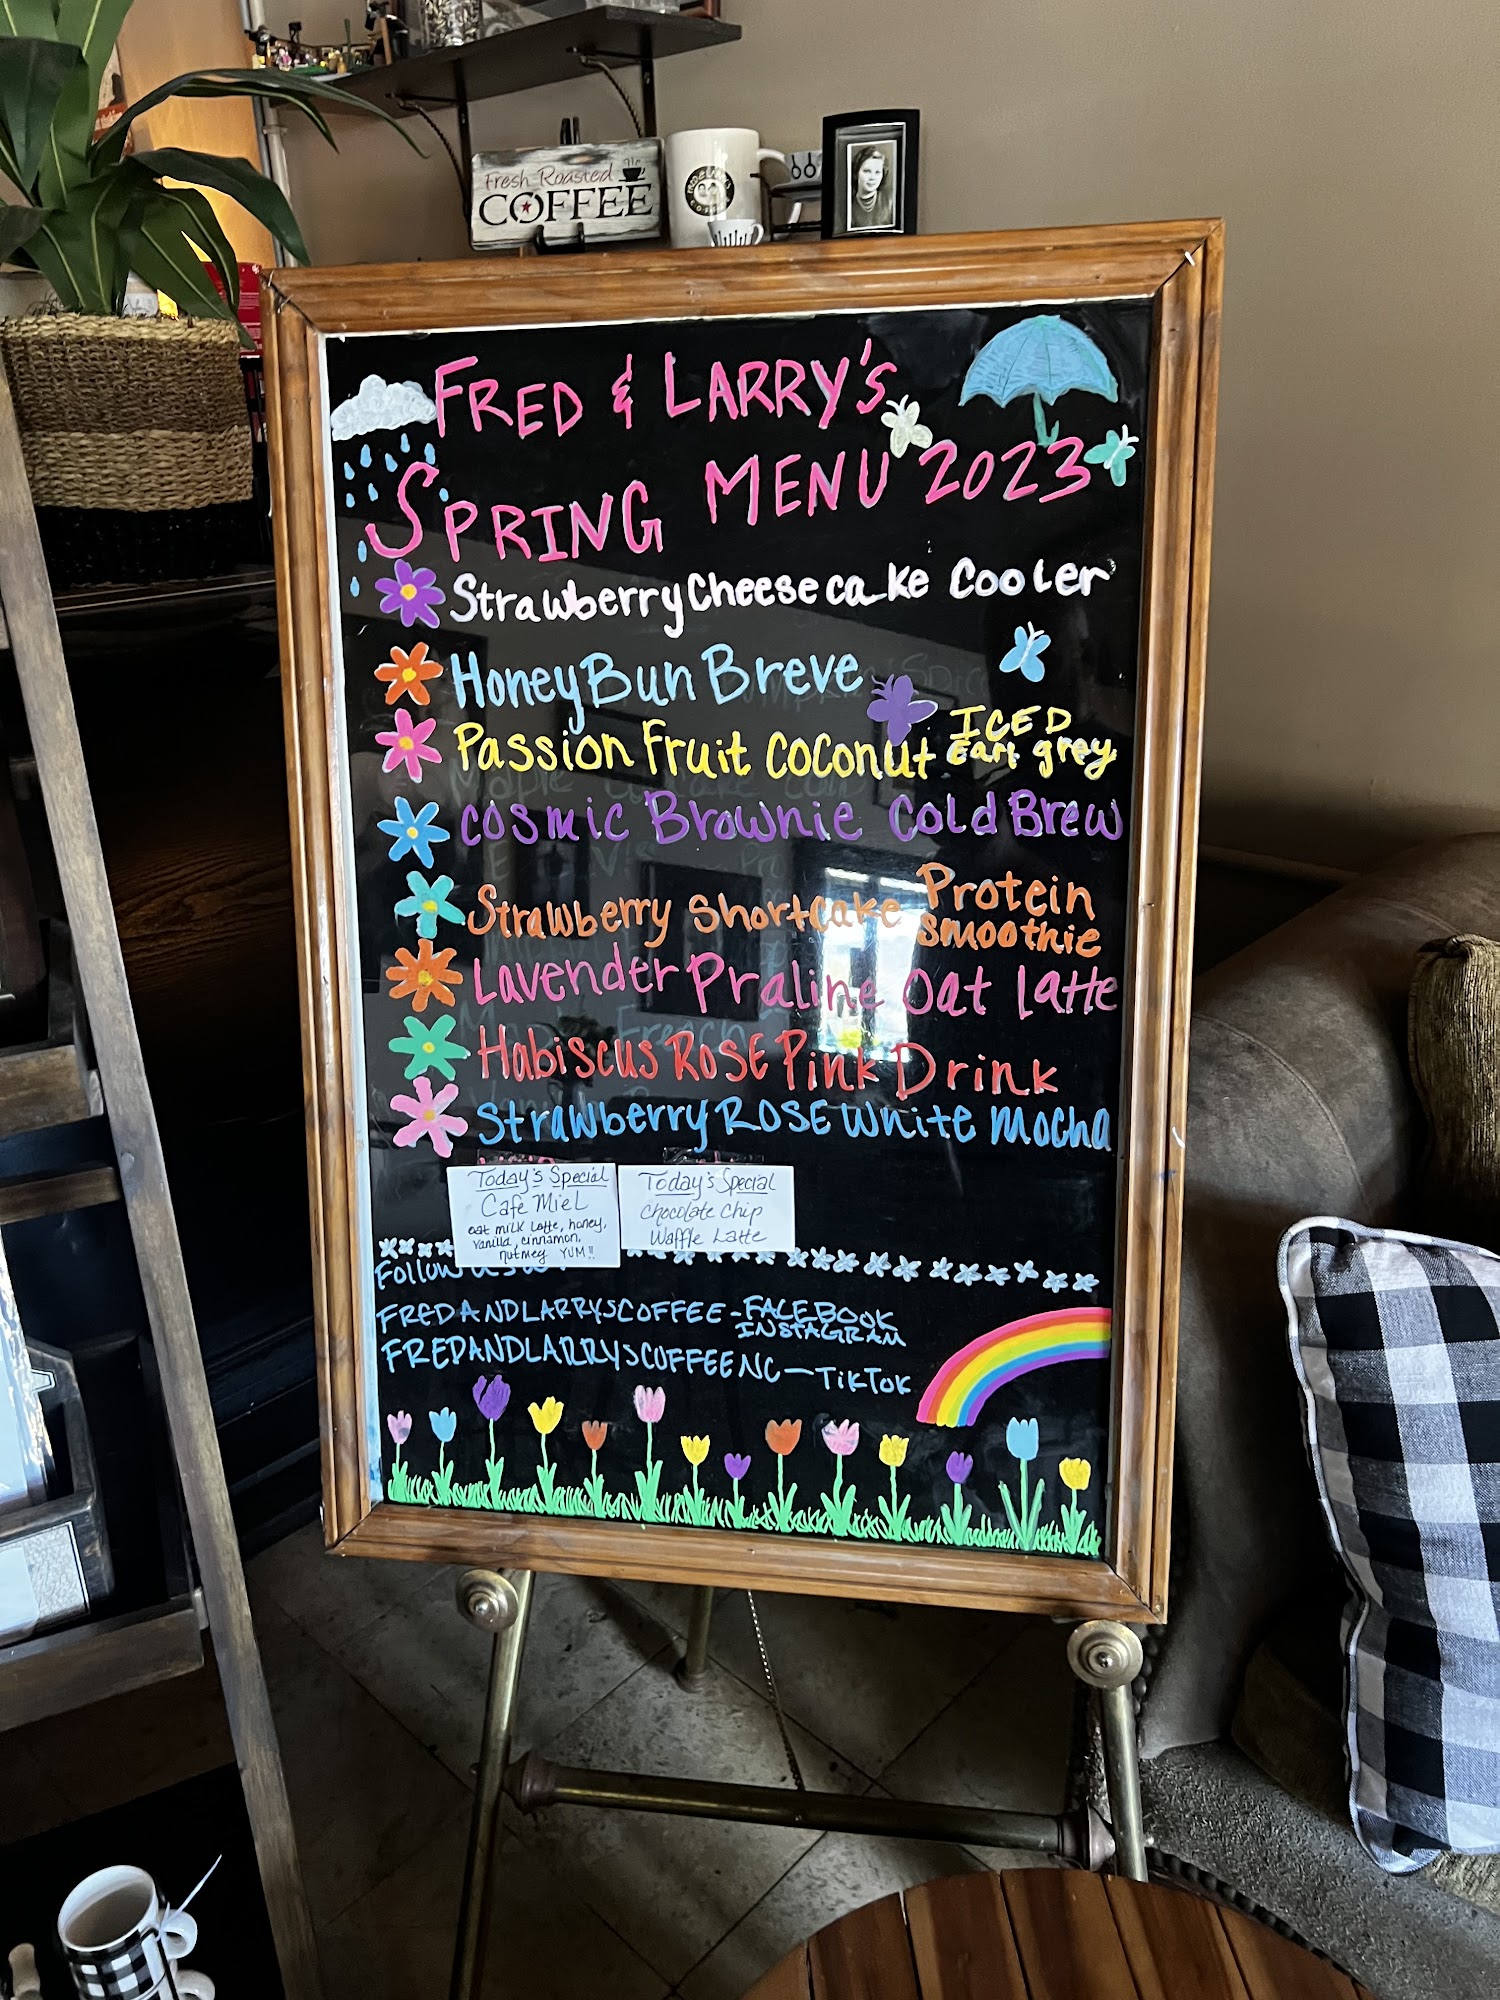 Fresh Roasted
COFFEE
FRED & LARRY'S
SPRING MENU 2023
Strawberry Cheesecake Cooler
Honey Bun Breve
Passion Fruit Coconut ICED
Earl grey
Cosmic Brownie Cold Brew
Strawberry Shortcake Protein
Smoothie
Lavender Praline Oat Latte
Habiscus ROSE Pink Drink
Strawberry ROSE White Mocha
Today's Special
Cafe Miel
oat milk latte, honey,
vanilla, cinnamon,
nutmeg YUM!!
Today's Special
Chocolate Chip
Waffle Latte
Follow us
FREDANDLARRYSCOFFEE - FACEBOOK
INSTAGRAM
FREDANDLARRYSCOFFEENC - TIKTOK